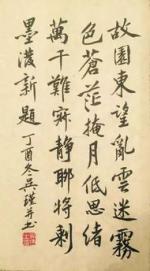 故園東望亂雲迷霧
色蒼茫掩月低思緒
萬千難寐靜聊將剩
墨潑新題丁酉冬吳瑾并書